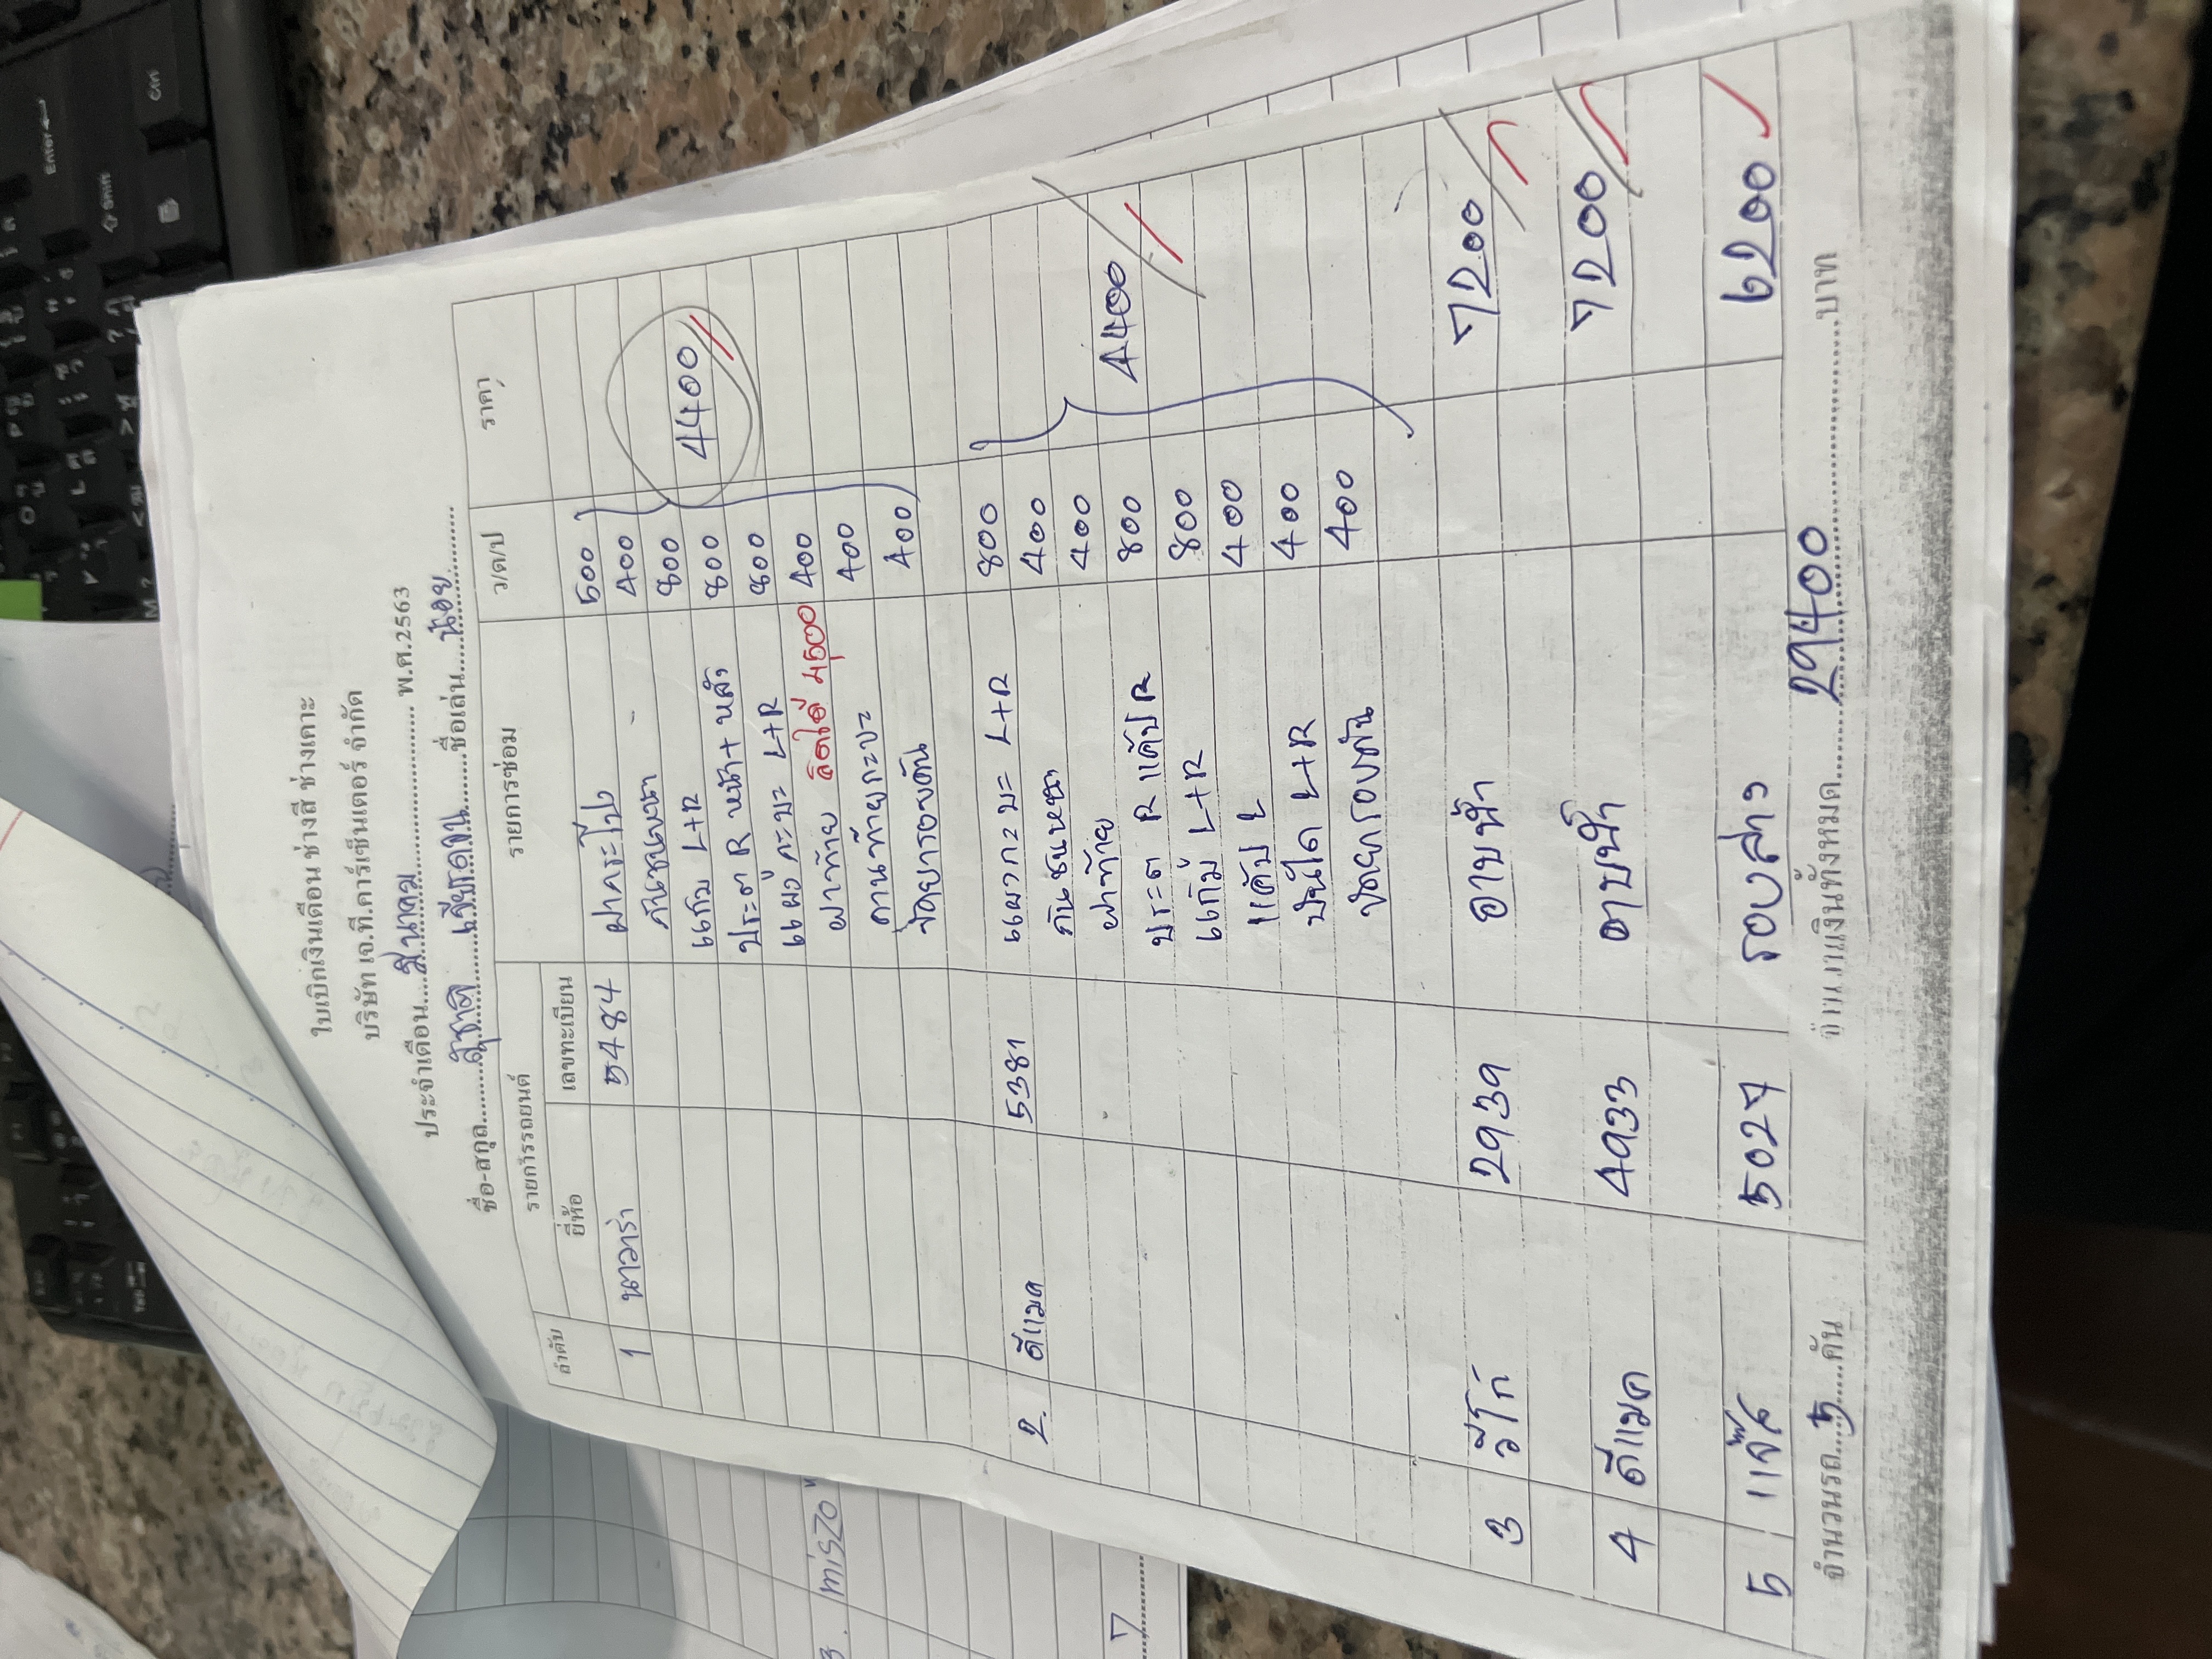 ใบเบิกเงินเดือน ช่างสี ช่างเคาะ
บริษัท เจ.ที.คาร์เซ็นเตอร์ จำกัด
ประจำเดือน....มีนาคม.... พ.ศ.2563
ชื่อ-สกุล....สุชาติ ....ชื่อเล่น....น้อย....
ลำดับ รายการรถยนต์ รายการซ่อม ว/ด/ป ราคา
ยี่ห้อ เลขทะเบียน
1 นาวาร่า 5484 ฝากระโปง 500
กันชนหน้า 400
แก้ม L+R 800 4400
ประตู R หน้า+หลัง 800
แผงกะบะ L+R 800
ฝาท้าย 400
คิดได้ 4500
คานท้ายกะบะ 400
400
2. ดีแมค 5381 แผงกะบะ L+R 800
กันชนหน้า 400
ฝาท้าย 400
ประตู R แค๊ป R 800 4400
แก้ม L+R 800
แค๊ป L 400
บันได L+R 400
400
3 วีโก้ 2939 อาบน้ำ 7200
4 ดีแมค 4933 อาบน้ำ 7200
5 แจ๊ส 5027 รอบสาว 6200
จำนวนรถ...5...คัน จำนวนเงินทั้งหมด....29400....บาท
Enter
Shift
Ctrl
miszo"